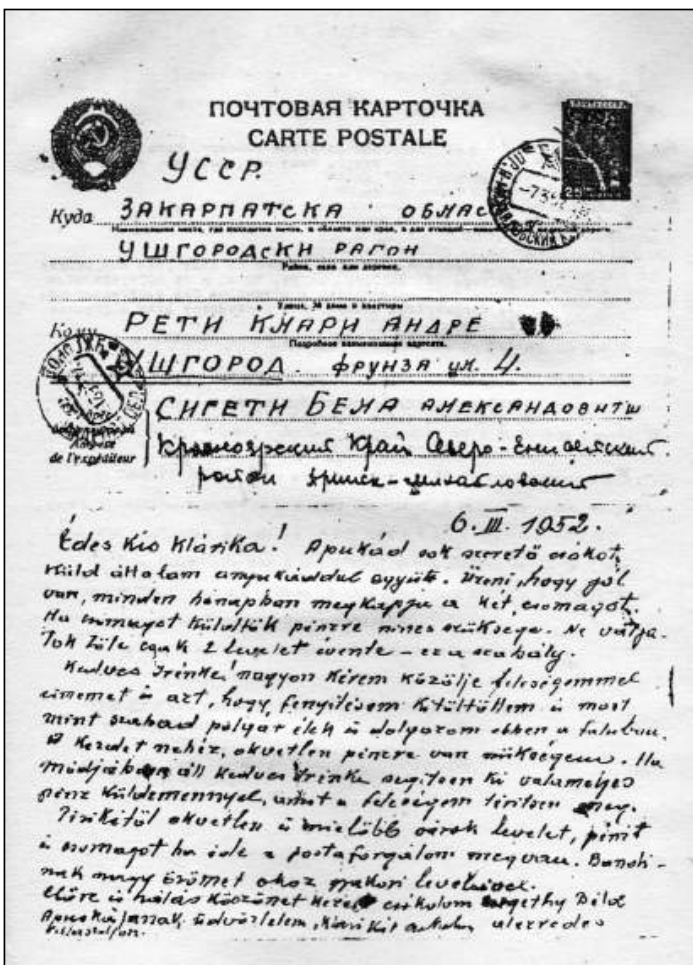 ПОЧТОВАЯ КАРТОЧКА
CARTE POSTALE
УССР.
Куда ЗАКАРПАТСКА ОБЛАС
УШГОРОДСКИ РАГОН
Район, село или деревня.
Улица, № дома и квартиры
Кому РЕТИ КЛАРИ АНДРЕ
Подробное наименование адресата.
УШГОРОД. ФРУНЗА УЛ. 4.
СИГЕТИ БЕЛА АЛЕКСАНДОВИТШ
Adresse
de l'expéditeur
Красноярский Край Северо-Енисейский
район
6. III. 1952.
Édes kis Klárika! Apukád sok szerető csókot
küld általam anyukáddal együtt. Üzeni, hogy jól
van, minden hónapban megkapja a két csomagot.
Ha csomagot küldtök pénzre nincs szüksége. Ne várja-
tok tőle csak 2 levelet évente – ez a szabály.
Kedves Irénke! nagyon kérem közölje feleségemmel
címemet is azt, hogy fenyítésem kitöltöttem is most
mint szabad polgár élek is dolgozom ebben a faluban.
A kezdet nehéz, okvetlen pénzre van szükségem. Ha
módjában áll kedves Irénke segítsen ki valamelyes
pénz küldeménnyel, amit a feleségem térítsen meg.
Pirikétől okvetlen is mielőbb várok levelet, pénzt
is csomagot ha ide a postaforgalom megvan. Bandi-
nak nagy örömet okoz gyakori levelével.
Előre is hálás köszönet kezét csókolom Béla
Apukájának üdvözletem, Klárikát alezredes